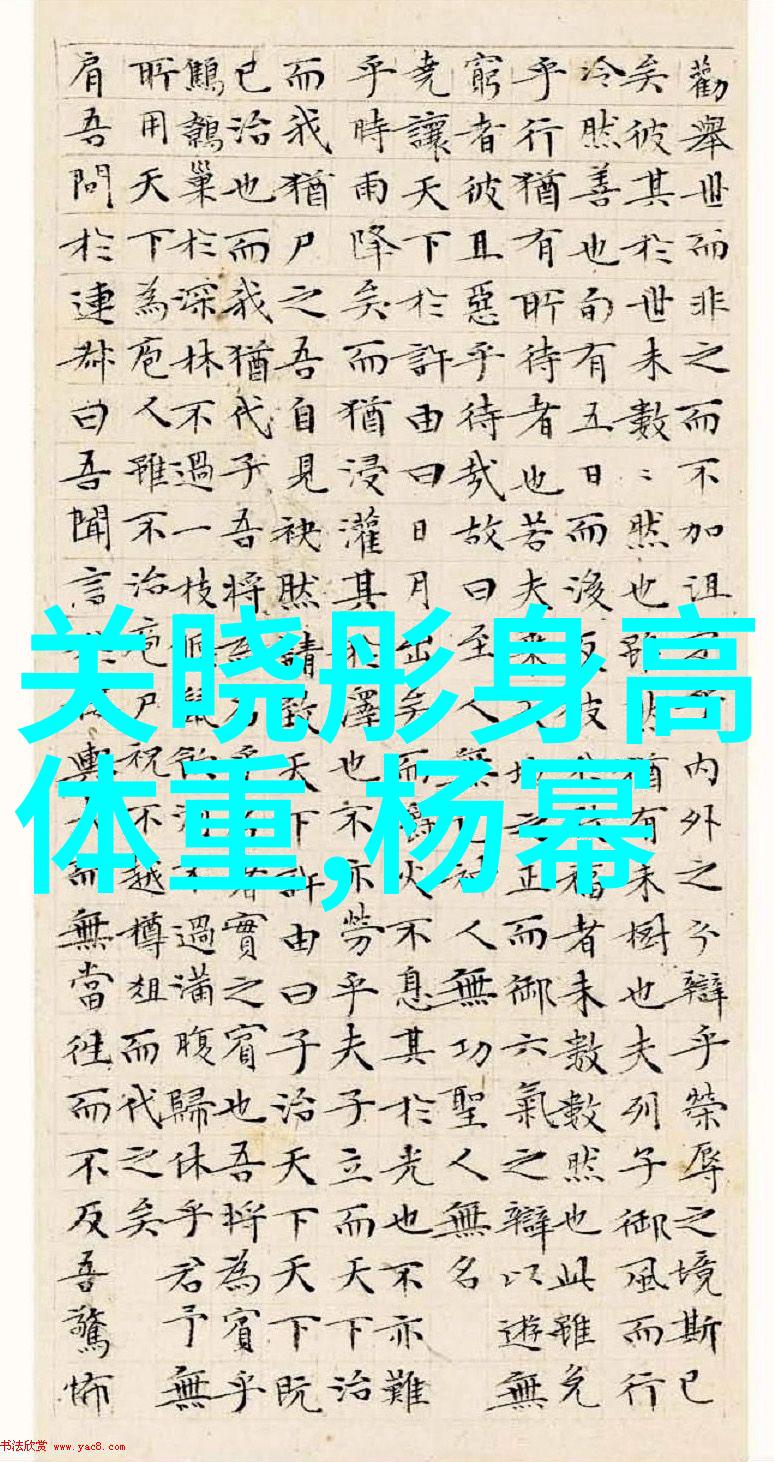 勸舉世而非之而不加沮內外之分辯乎榮辱之境斯已
矣彼其於世未數〻然也雖然猶有未樹也夫列子御風而行
冷然善也旬有五日而後反彼福者未數數然也此雖免
乎行猶有所待者也若夫乘之正而御六氣之辯以遊無
窮者彼且惡乎待哉故曰至人無人無功聖人無名
堯讓天下於許由曰日月出矣而爝火不息其於光也不亦難
乎時雨降矣而猶浸灌其於澤也不亦勞乎夫子立而天下治
而我猶尸之吾自見缺然請致天下許由曰子治天下天下既
已治也而我猶代子吾將為者實之賓也吾將為賓乎
鷦鷯巢於深林不過一枝偃鼠飲河不過滿腹歸休乎君予無
所用天下為庖人雖不治庖尸祝不越樽俎而代之矣
肩吾問於連叔曰吾聞言輿而無當往而不反吾驚怖
关晓彤身高
体重,杨幂
书法欣赏 www.yac8.com